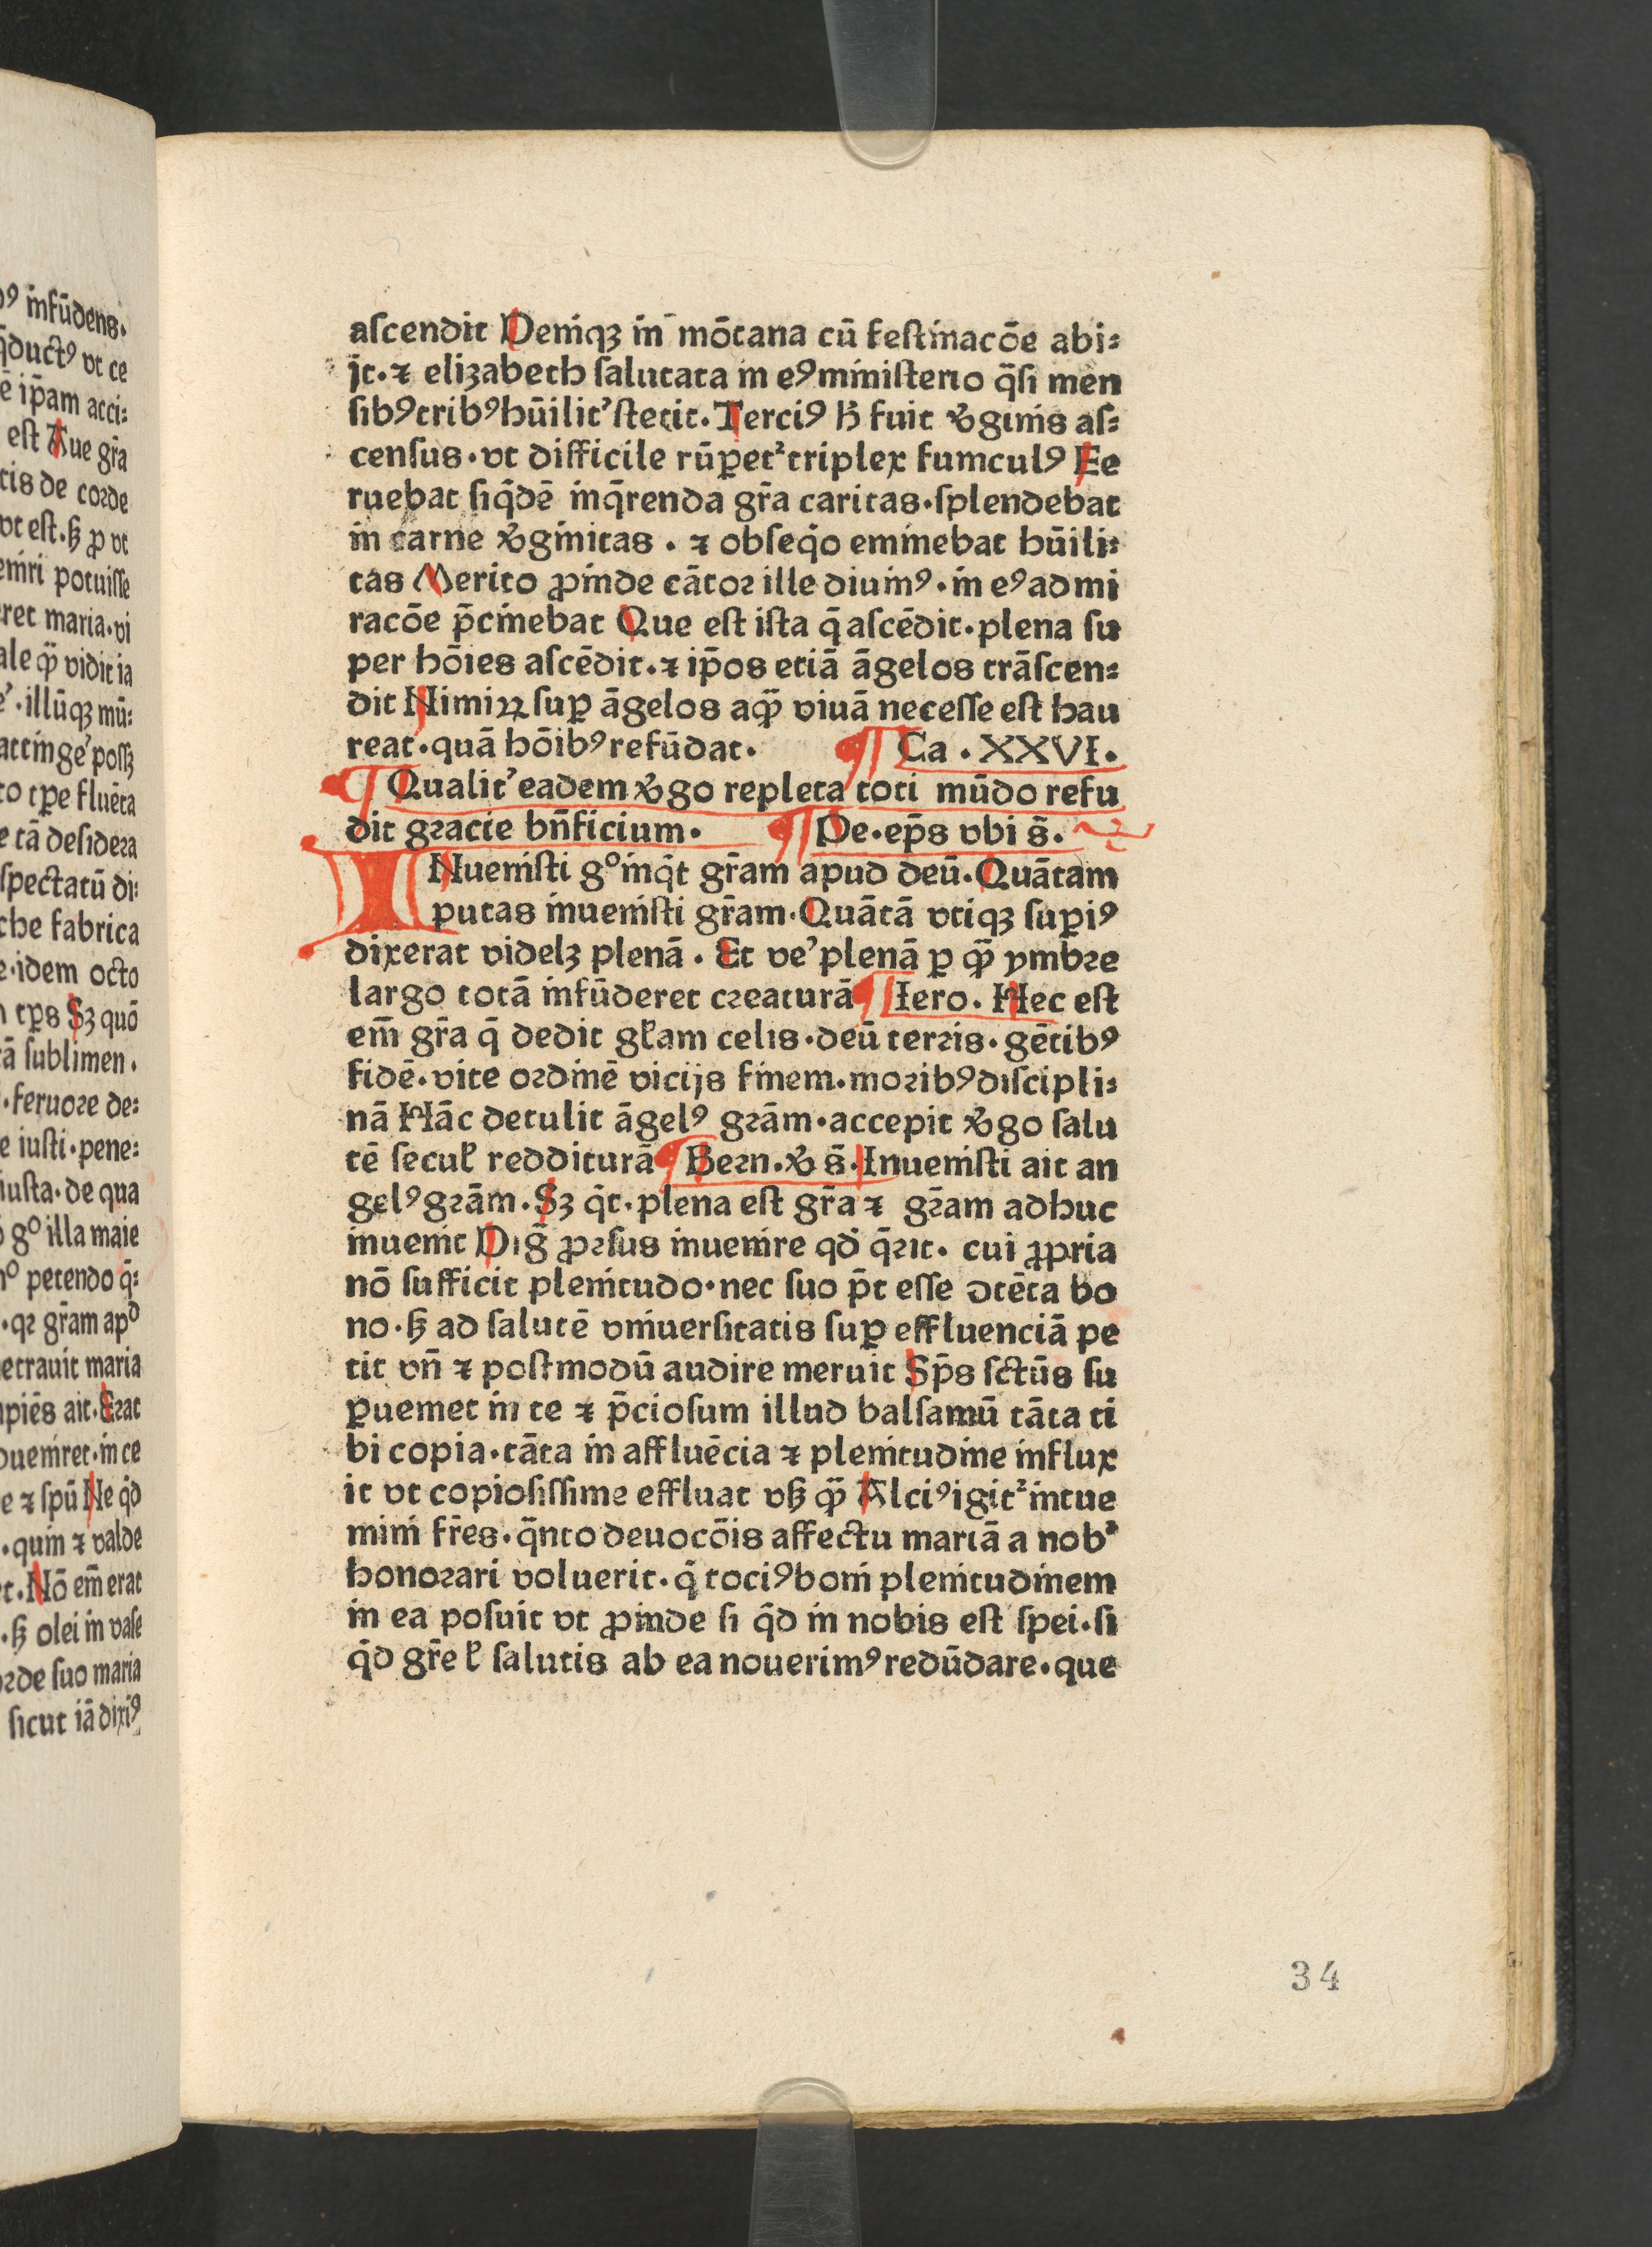 ascendit Deniqꝫ in mōtana cū festinacōe abi⸗
jt·⁊ elizabeth salutata in eꝰ ministerio q̄si men
sibꝰ tribꝰ hūilit' stetit. Terciꝰ h̄ fuit v̓ginis as⸗
census·vt difficile rūpet᷑ triplex funiculꝰ Fe
ruebat siq̄dē inq̄renda gr̄a caritas·splendebat
in carne v̓ginitas · ⁊ obseq̇o eminebat hūili⸗
tas Merito ꝓinde cātor ille diuinꝰ·in eꝰ admi
racōe p̄cinebat Que est ista q̄ ascēdit·plena su
per hōies ascēdit·⁊ ip̄os etiā āgelos trāscen⸗
dit Nimiꝝ suꝑ āgelos aqꝫ viuā necesse est hau
reat·quā hōibꝰ refūdat.
¶ Ca · XXVI.
¶ Qualit' eadem v̓go repleta toti mūdo refu
dit gracie bn̄ficium.
¶ De·ep̄s vbi s̄.
INuenisti gº inq̇t gr̄am apud deū. Quātam
putas inuenisti gr̄am. Quātā vtiqꝫ suꝑiꝰ
dixerat videlꝫ plenā · Et ve' plenā ꝑ qꝫ ymbre
largo totā infūderet creaturā ¶ Iero. Hec est
em̄ gr̄a q̄ dedit gl̄am celis·deū terris·gētibꝰ
fidē·vite ordinē vicijs finem·moribꝰ discipli⸗
nā Hāc detulit āgelꝰ grām·accepit v̓go salu
tē secul̓ redditurā ¶ Bern. v̓ s̄. Inuenisti ait an
gelꝰ grām. Sꝫ q̇t·plena est gr̄a ⁊ gr̄am adhuc
inuenit Dig̅ ꝓrsus inuenire qd̓ q̄rit· cui ꝓpria
nō sufficit plenitudo·nec suo p̄t esse ↄtēta bo
no·sꝫ ad salutē vniuersitatis suꝑ effluenciā pe
tit vn̄ ⁊ postmodū audire meruit Sp̄s sctūs su
ꝑueniet in te ⁊ p̄ciosum illud balsamū tāta ti
bi copia·tāta in affluēcia ⁊ plenitudine influx
it vt copiosissime effluat vsꝫ qꝫ Alciꝰ igit᷑ intue
mini fr̄es·q̄nto deuocōis affectu mariā a nob᷑
honorari voluerit·q̇ tociꝰ boni plenitudinem
in ea posuit vt ꝓinde si q̇d in nobis est spei·si
q̇d gr̄e l̓ salutis ab ea nouerimꝰ redūdare·que
34